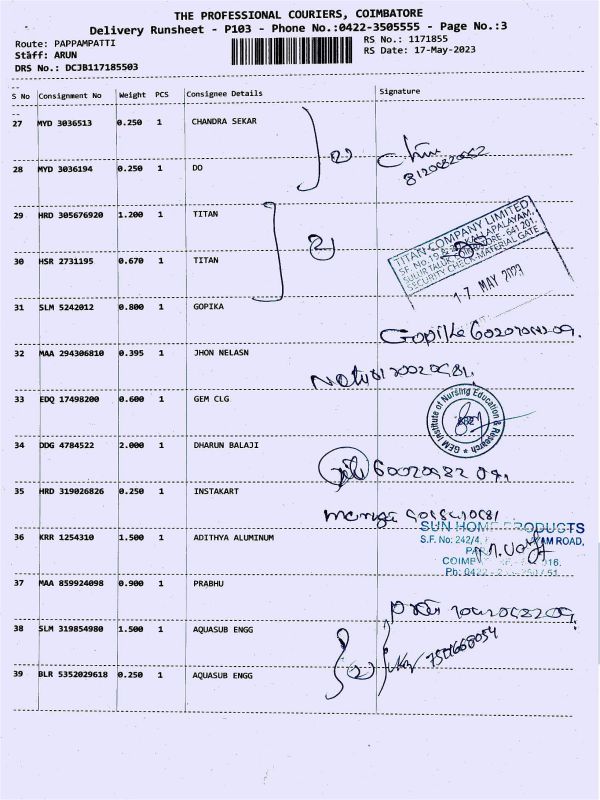 THE PROFESSIONAL COURIERS, COIMBATORE
Delivery Runsheet - P103 - Phone No.:0422-3505555 - Page No.:3
Route: PAPPAMPATTI
RS No.: 1171855
Stàff: ARUN
RS Date: 17-May-2023
DRS No.: DCJB117185503
S No Consignment No Weight PCS Consignee Details Signature
27 MYD 3036513 0.250 1 CHANDRA SEKAR
28 MYD 3036194 0.250 1 DO
29 HRD 305676920 1.200 1 TITAN
TITAN COMPANY LIMITED
SECURITY CHECK-MATERIAL GATE
17 MAY 2023
30 HSR 2731195 0.670 1 TITAN
31 SLM 5242012 0.800 1 GOPIKA
32 MAA 294306810 0.395 1 JHON NELASN
33 EDQ 17498200 0.600 1 GEM CLG
GEM Institute of Nursing Education & Research
34 DDG 4784522 2.000 1 DHARUN BALAJI
35 HRD 319026826 0.250 1 INSTAKART
36 KRR 1254310 1.500 1 ADITHYA ALUMINUM
SUN HOME PRODUCTS
S.F. No: 242/4,
37 MAA 859924098 0.900 1 PRABHU
38 SLM 319854980 1.500 1 AQUASUB ENGG
39 BLR 5352029618 0.250 1 AQUASUB ENGG